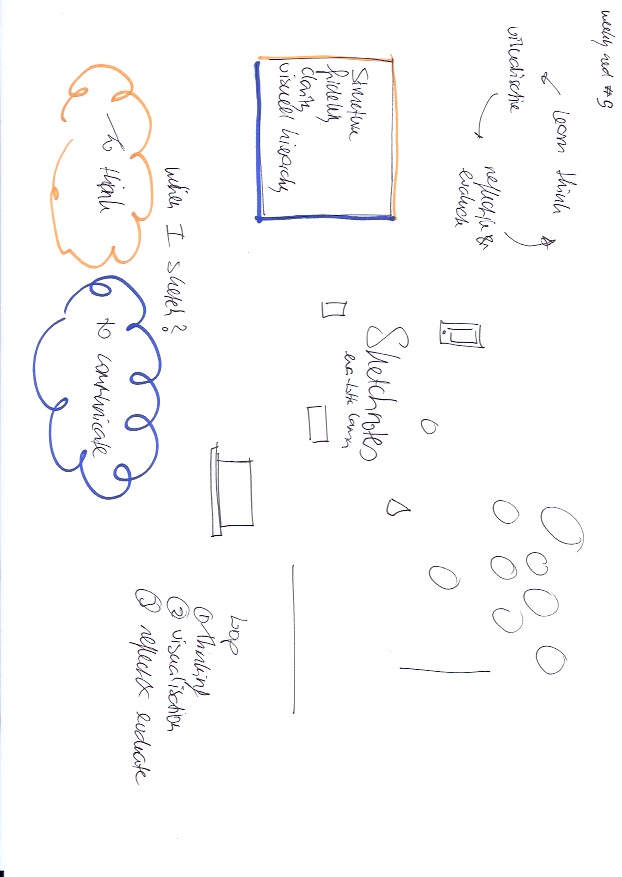 weekly red #9
learn think
visualisation
reflection &
evaluate
Structure
fidelity
clarity
visual hierarchy
when I sketch?
to think
to communicate
Sketchnotes
Loop
① thinking
② visualisation
③ reflect & evaluate